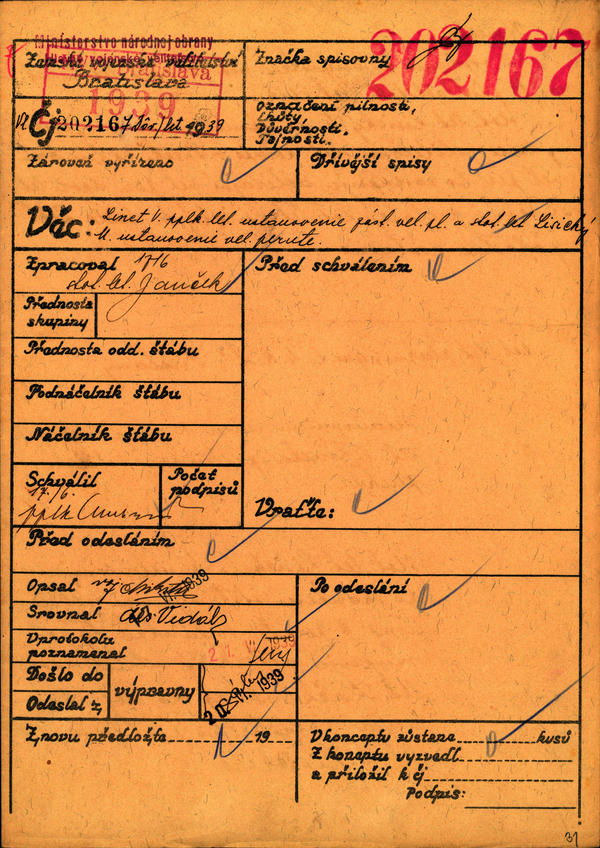 Ministerstvo národnej obrany
Bratislava
1939
Zemské vojenské veliteľství
Bratislava
Značka spisovny
202167
Čj 202167 Dôv./ 1939
Označení pilnosti,
Lhůty,
Důvěrnosti,
Tajnosti.
Zároveň vyřízeno
Dřívější spisy
Věc: Linet V. pplk. let. ustanovenie zást. vel. pl. a stot. let. Lisický
M. ustanovenie vel. perute.
Zpracoval 17/6
stot. let. Janček
Před schválením
Přednosta
skupiny
Přednosta odd. štábu
Podnáčelník štábu
Náčelník štábu
Schválil
17./6.
pplk
Počet
podpisů
Vraťte:
Před odesláním
Opsal voj.
Po odeslání
Srovnal des. Vidál
V protokolu
poznamenal
21. V 1939
Došlo do
Odeslal z
výpravny
20. VI. 1939
Znovu předložte 19
V konceptu zůstane kusů
Z konceptu vyzvedl
a přiložil k čj
Podpis:
31